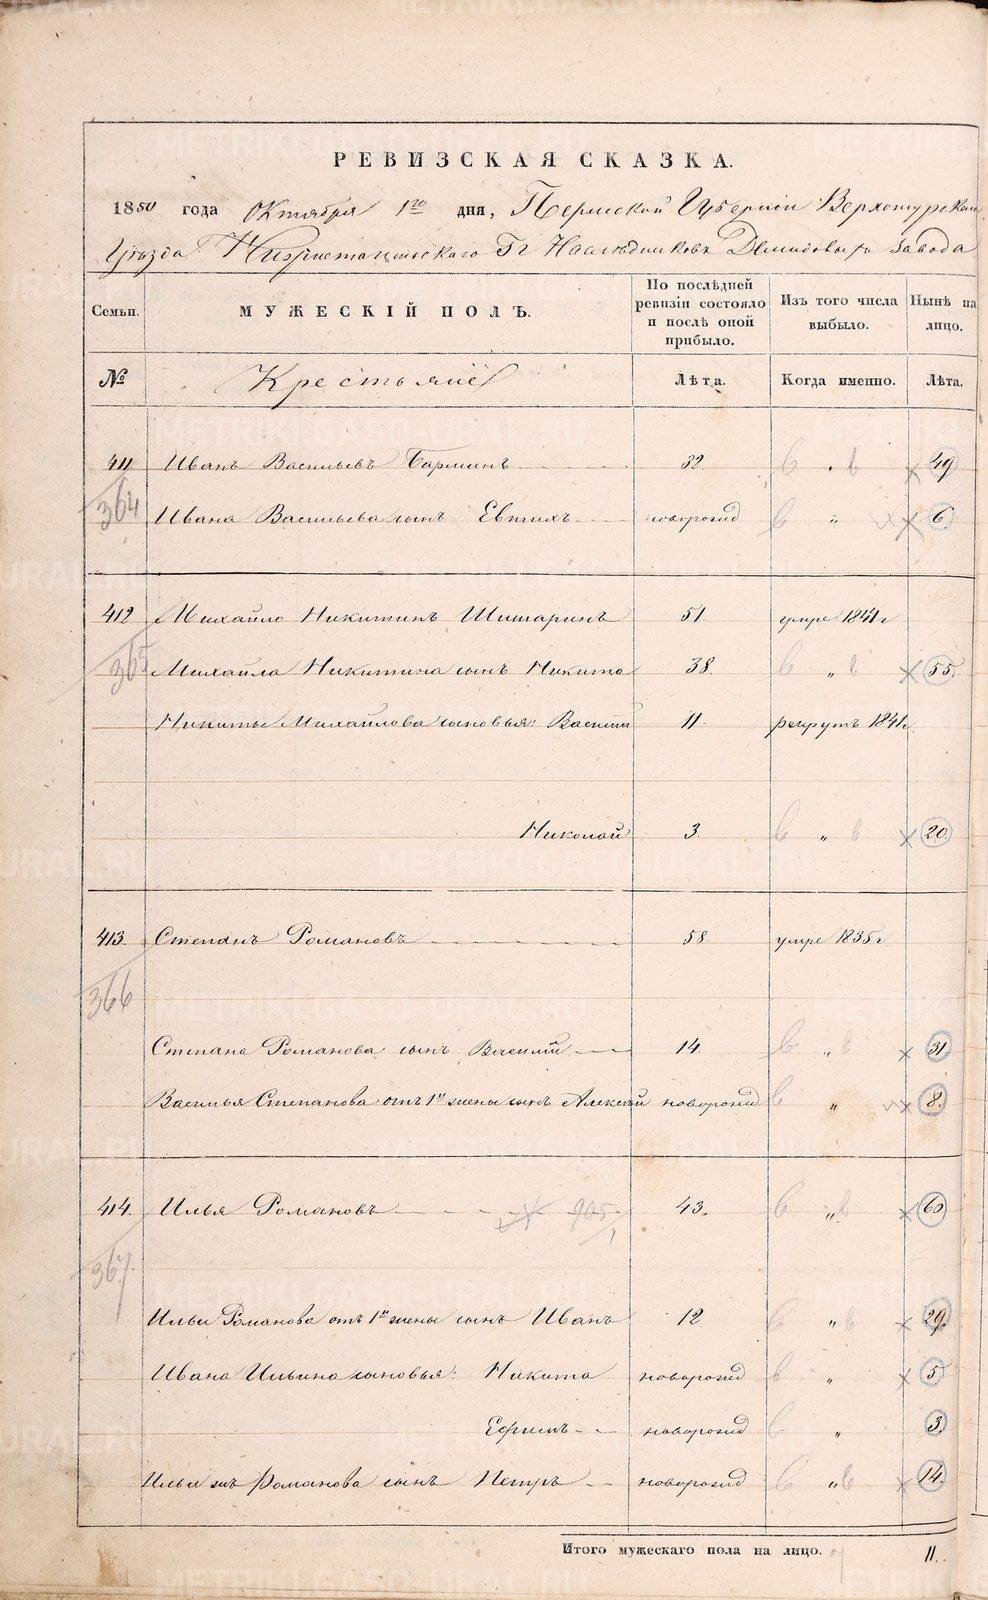 РЕВИЗСКАЯ СКАЗКА.
1850 года Октября 1го дня, Пермской Губернии Верхотурскаго
Уѣзда Нижнетагильскаго Гг Наслѣдниковъ Демидовыхъ завода
Семьи. МУЖЕСКІЙ ПОЛЪ. По послѣдней ревизіи состояло и послѣ оной прибыло. Изъ того числа выбыло. Нынѣ на лицо.
№ Крестьяне Лѣта. Когда именно. Лѣта.
411 Иванъ Васильевъ Барминъ 32. „ 49
364 Ивана Васильева сынъ Евтихъ новорожд „ 6
412 Михайло Никитинъ Шишаринъ 51. умре 1841 г
365 Михайла Никитина сынъ Никита 38. „ 55
Никиты Михайлова сыновья: Василій 11. рекрутъ 1841 г.
Николай 3. „ 20
413. Степанъ Романовъ 58 умре 1835 г
366
Степана Романова сынъ Василій 14. „ 31
Василья Степанова отъ 1й жены сынъ Алексѣй новорожд „ 8.
414. Илья Романовъ 905 43. „ 60
367.
Ильи Романова отъ 1й жены сынъ Иванъ 12 „ 29.
Ивана Ильина сыновья: Никита новорожд „ 5
Ефимъ новорожд „ 3.
Ильи Романова сынъ Петръ новорожд „ 14.
Итого мужескаго пола на лицо. 11.
METRIKI.GASO-URAL.RU